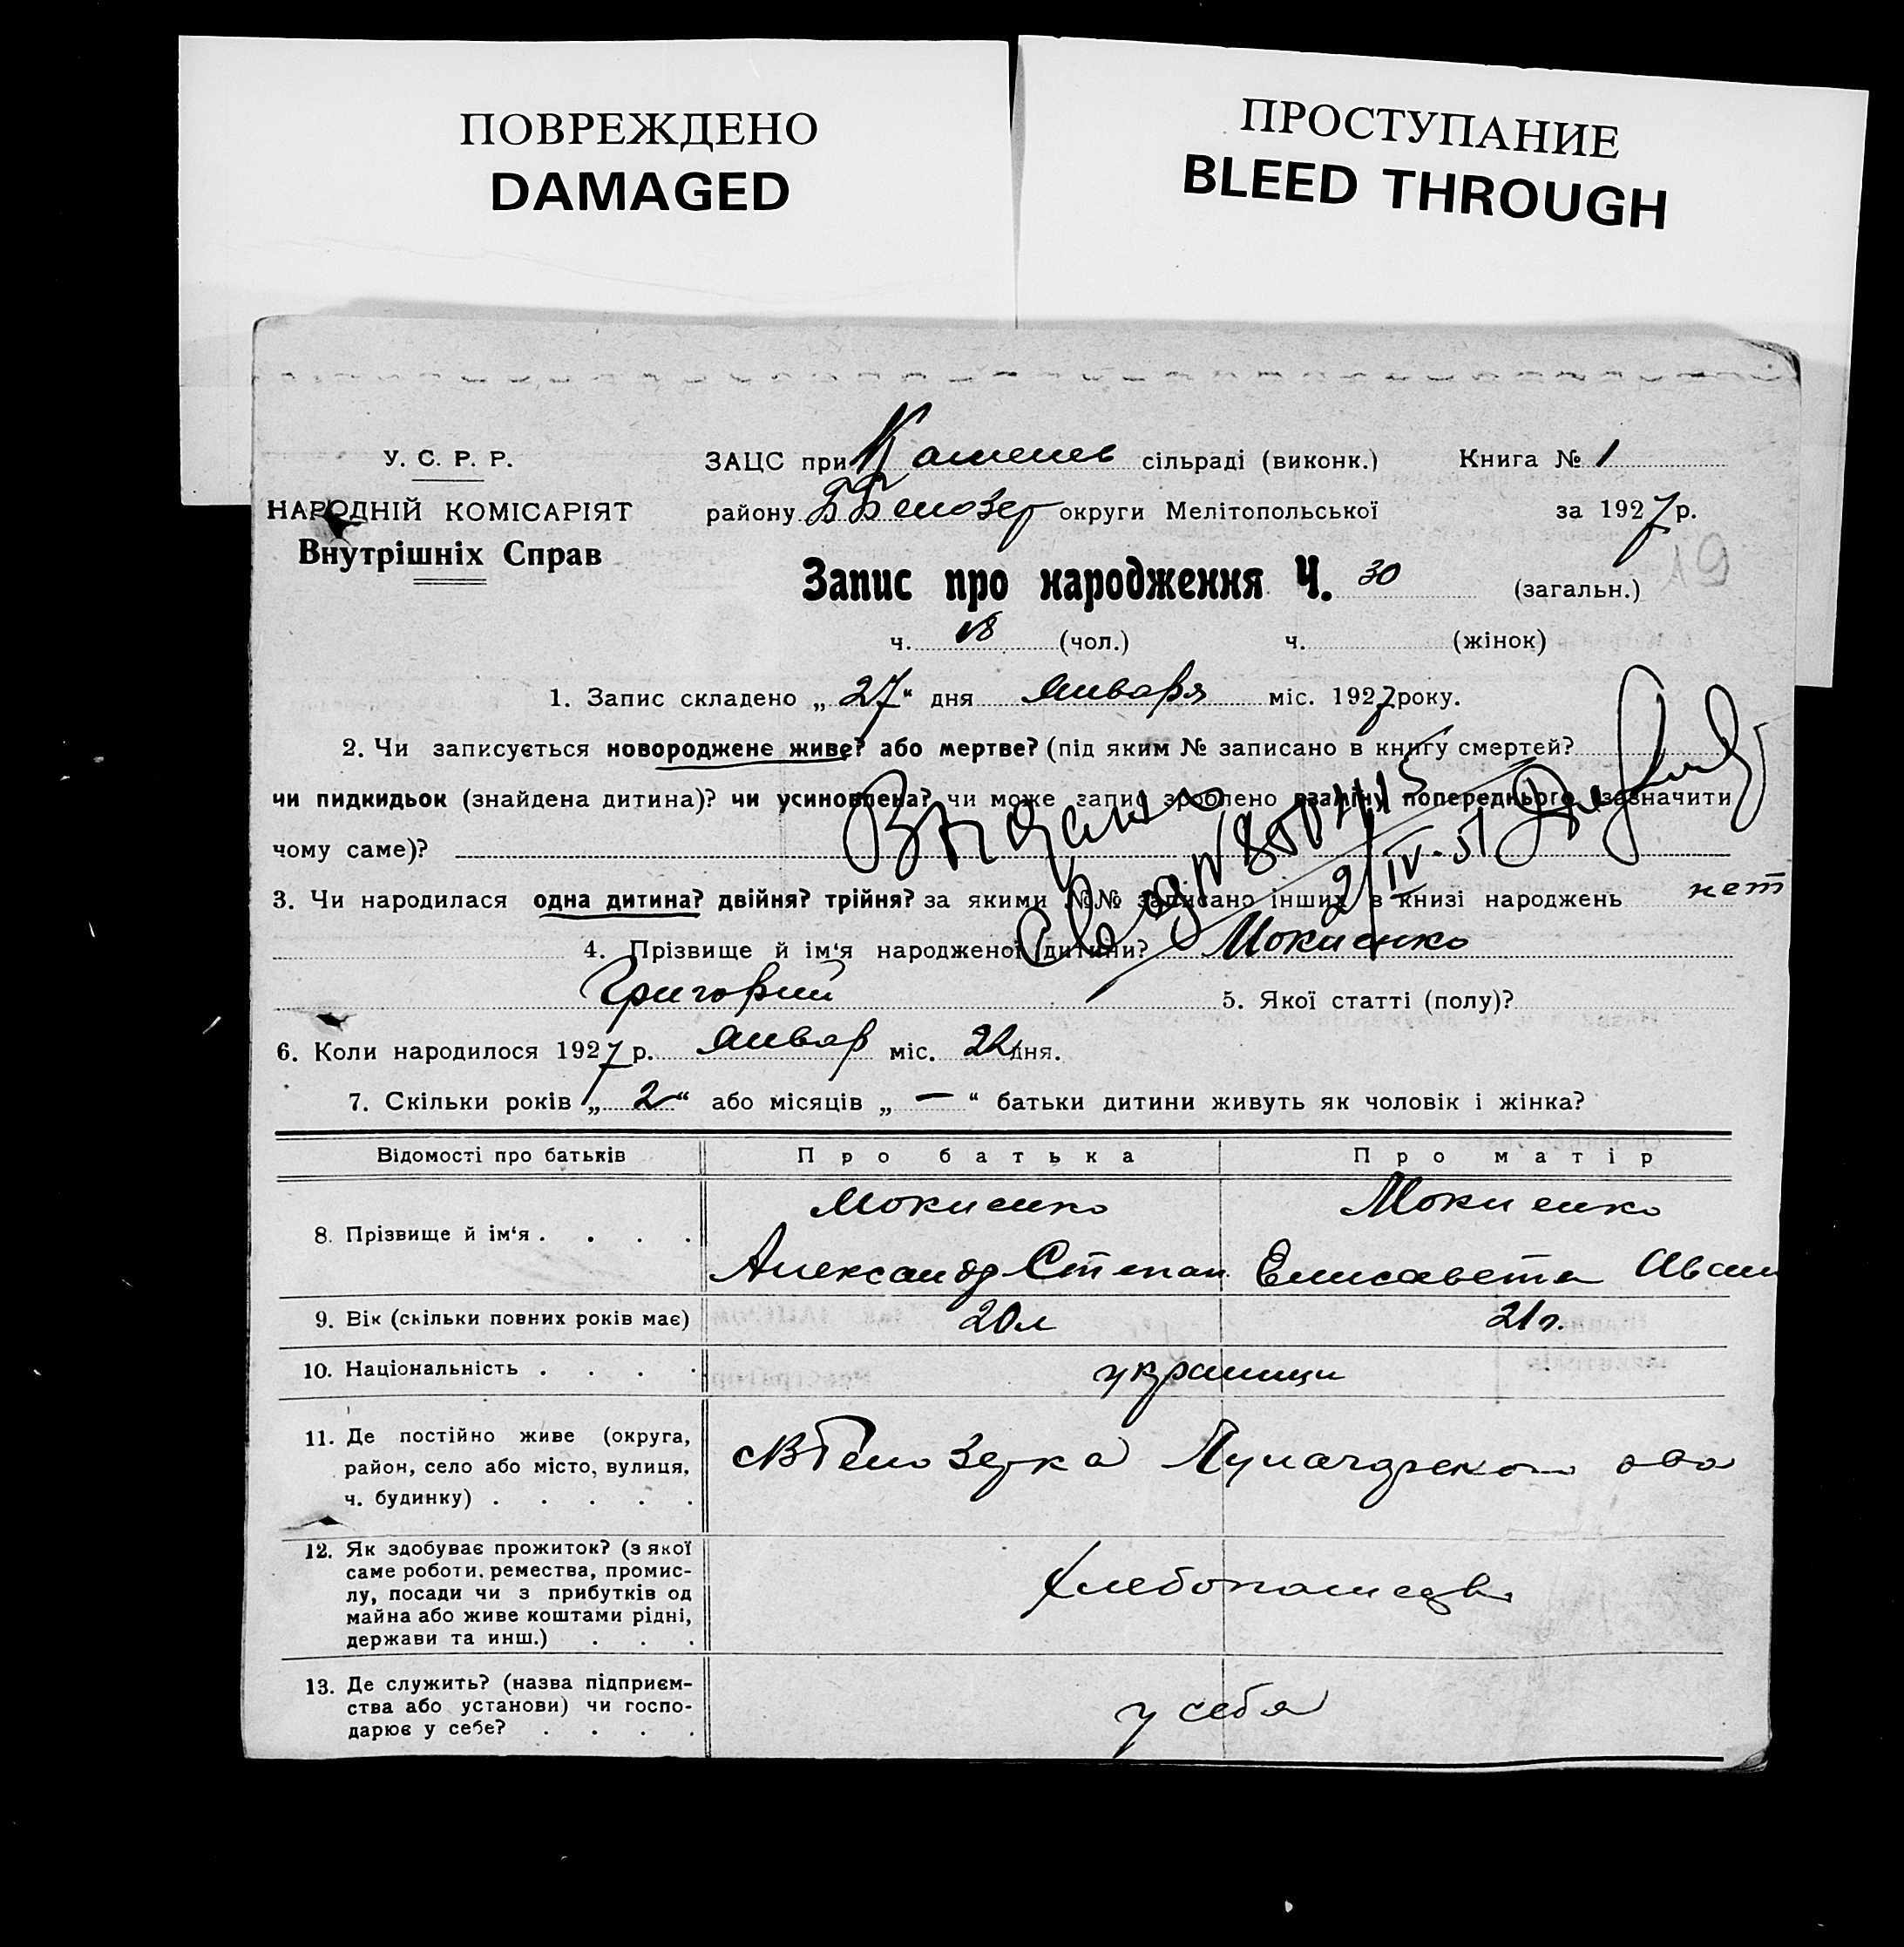 ПОВРЕЖДЕНО
DAMAGED
ПРОСТУПАНИЕ
BLEED THROUGH
У. С. Р. Р.
НАРОДНІЙ КОМІСАРІЯТ
Внутрішніх Справ
ЗАЦС при Каменс сільраді (виконк.) Книга № 1
району ББелозер округи Мелітопольської за 1927 р.
19
Запис про народження Ч. 30 (загальн.)
ч. 18 (чол.) ч. (жінок)
1. Запис складено „ 27 “ дня Января міс. 1927 року.
2. Чи записується новороджене живе? або мертве? (під яким № записано в книгу смертей?
чи пидкидьок (знайдена дитина)? чи усиновлена? чи може запис зроблено взамін попереднього (зазначити
чому саме)?
Выдано
2/IV-51
3. Чи народилася одна дитина? двійня? трійня? за якими №№ записано інших в книзі народжень нет
4. Прізвище й ім‘я народженої дитини? Мокиенко
Григорий 5. Якої статті (полу)?
6. Коли народилося 1927 р. Январ міс. 22 дня.
7. Скільки років „ 2 “ або місяців „ — “ батьки дитини живуть як чоловік і жінка?
Відомості про батьків Про батька Про матір
8. Прізвище й ім‘я . . . . Мокиенко Мокиенко
Александр Степан Елисавета Иван
9. Вік (скільки повних років має) 20л 21г.
10. Національність . . . . украинци
11. Де постійно живе (округа,
район, село або місто, вулиця,
ч. будинку) . . . . .
ВБелозерка
12. Як здобуває прожиток? (з якої
саме роботи, ремества, промис-
лу, посади чи з прибутків од
майна або живе коштами рідні,
держави та инш.) . . .
Хлебопашедв
13. Де служить? (назва підприєм-
ства або установи) чи госпо-
дарює у себе? . . . .
у себя